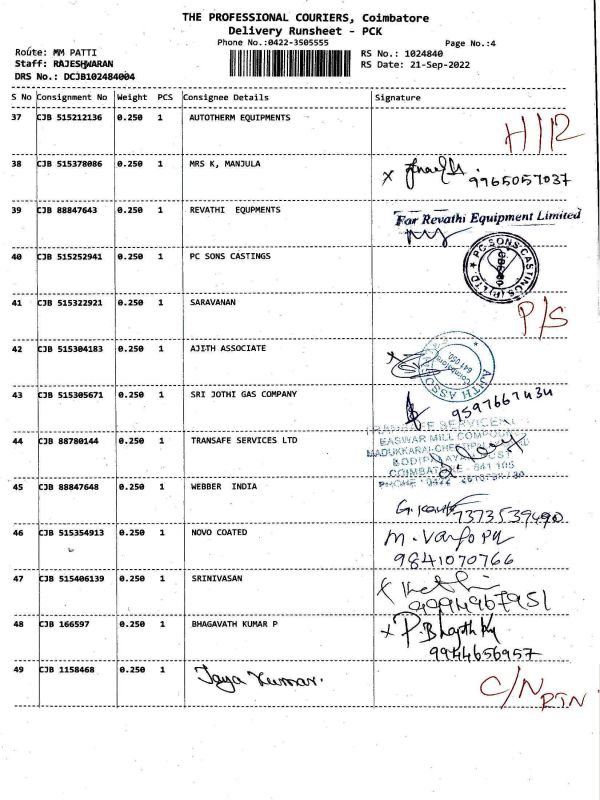 THE PROFESSIONAL COURIERS, Coimbatore
Delivery Runsheet - PCK
Phone No.:0422-3505555 Page No.:4
Route: MM PATTI RS No.: 1024840
Staff: RAJESHWARAN RS Date: 21-Sep-2022
DRS No.: DCJB102484004
S No Consignment No Weight PCS Consignee Details Signature
37 CJB 515212136 0.250 1 AUTOTHERM EQUIPMENTS
38 CJB 515378086 0.250 1 MRS K, MANJULA
9965057037
39 CJB 88847643 0.250 1 REVATHI EQUPMENTS For Revathi Equipment Limited
40 CJB 515252941 0.250 1 PC SONS CASTINGS
PC SONS CASTINGS (P) LTD
41 CJB 515322921 0.250 1 SARAVANAN P/S
42 CJB 515304183 0.250 1 AJITH ASSOCIATE
AJITH ASSO
Coimbatore
641 050
43 CJB 515305671 0.250 1 SRI JOTHI GAS COMPANY 9597667434
44 CJB 88780144 0.250 1 TRANSAFE SERVICES LTD
EASWAR MILL COMPOUND
COIMBATORE - 641 105
45 CJB 88847648 0.250 1 WEBBER INDIA
7373539490
46 CJB 515354913 0.250 1 NOVO COATED
9841070766
47 CJB 515406139 0.250 1 SRINIVASAN
9994967951
48 CJB 166597 0.250 1 BHAGAVATH KUMAR P
9944656957
49 CJB 1158468 0.250 1 Jaya Kumar. C/N
RTN